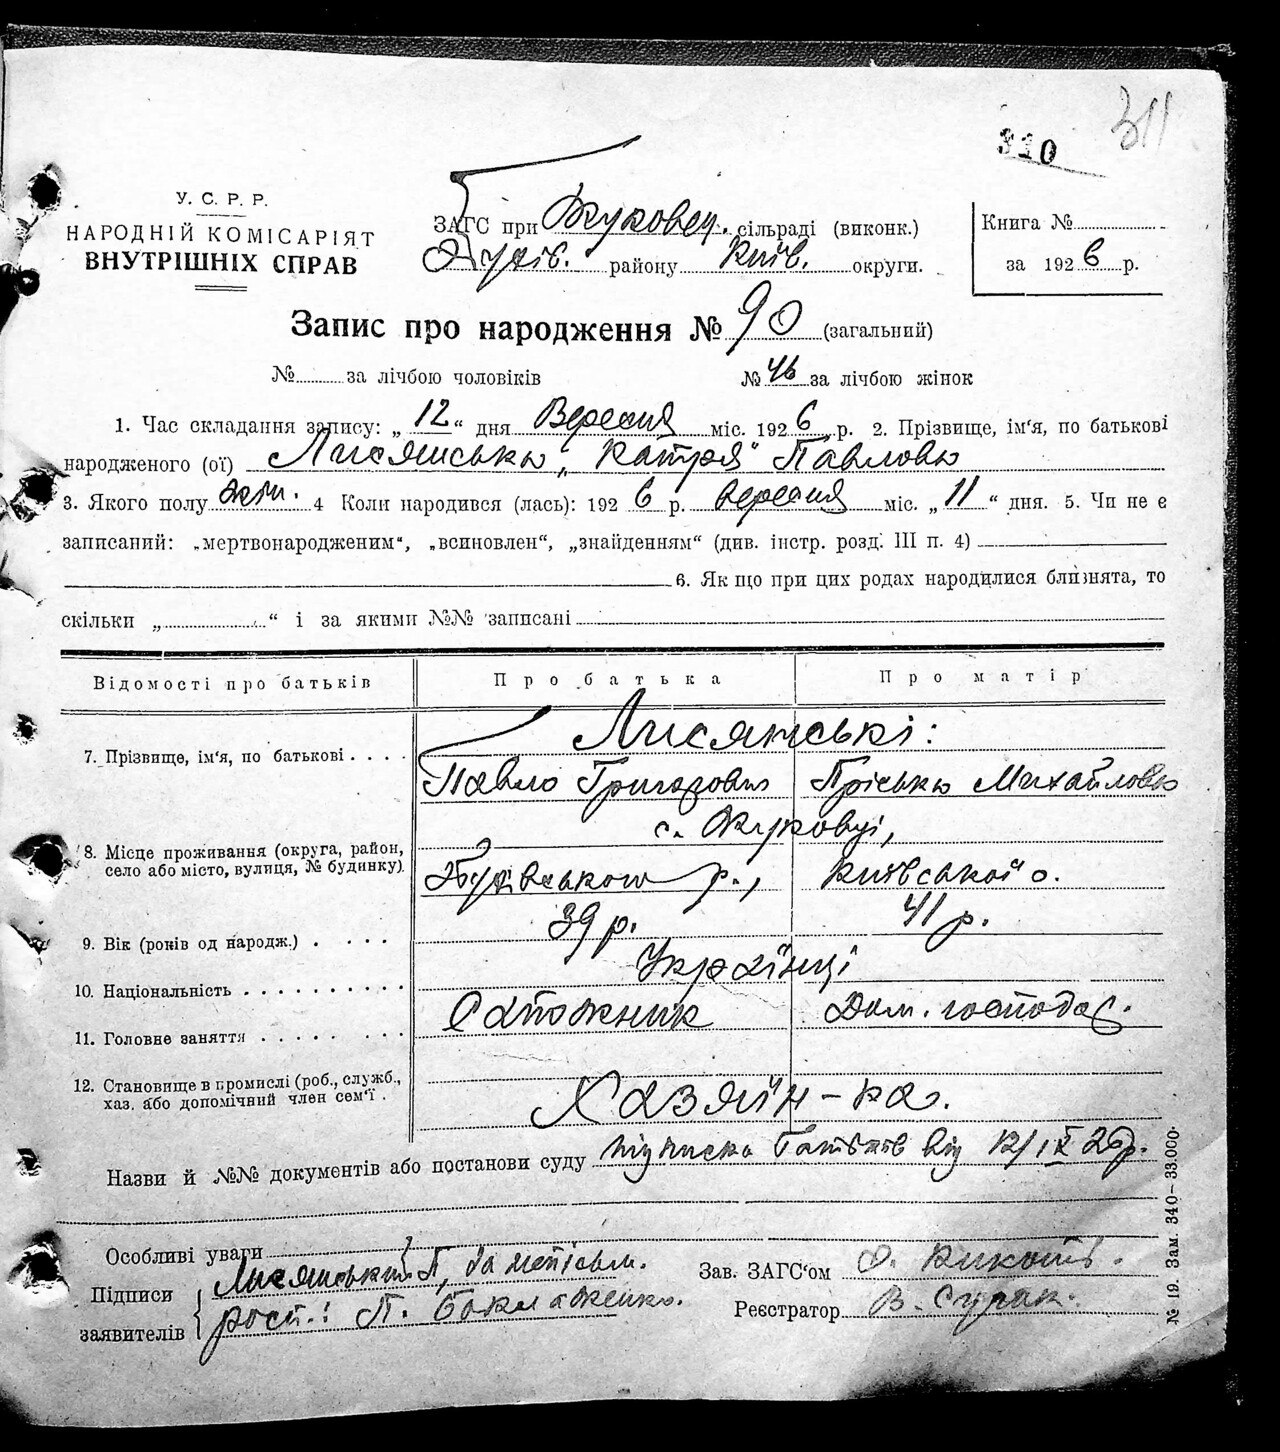 311
310
У. С. Р. Р.
НАРОДНІЙ КОМІСАРІЯТ
ВНУТРІШНІХ СПРАВ
ЗАГС при Жуковец. сільраді (виконк.)
району Київ. округи.
Книга №
за 1926 р.
Запис про народження № 90 (загальний)
№ за лічбою чоловіків № 46 за лічбою жінок
1. Час складання запису: „12“ дня Вересня міс. 1926 р. 2. Прізвище, ім'я, по батькові
народженого (ої) Лисянська „Катря“ Павлова
3. Якого полу жін. 4 Коли народився (лась): 1926 р. вересня міс. „11“ дня. 5. Чи не є
записаний: „мертвонародженим“, „всиновлен“, „знайденням“ (див. інстр. розд. III п. 4)
6. Якщо при цих родах народилися близнята, то
скільки „ “ і за якими №№ записані
Відомості про батьків Про батька Про матір
7. Прізвище, ім'я, по батькові Лисянські:
Павло Григорович Пріська Михайлова
с. Жуковці,
8. Місце проживання (округа, район,
село або місто, вулиця, № будинку) р., Київської о.
9. Вік (років од народж.) 39 р. 41 р.
10. Національність Українці
11. Головне заняття Сапожник Дом. господар.
12. Становище в промислі (роб., служб.,
хаз. або допомічний член сем'ї Хазяїн-ка.
Назви й №№ документів або постанови суду підписка батьків від 12/IX 26р.
Особливі уваги
Підписи
заявителів
Лисянський П, за неписьм.
росп.: П.
Зав. ЗАГС'ом
Реєстратор В.
№ 19. Зам. 340—33.000.